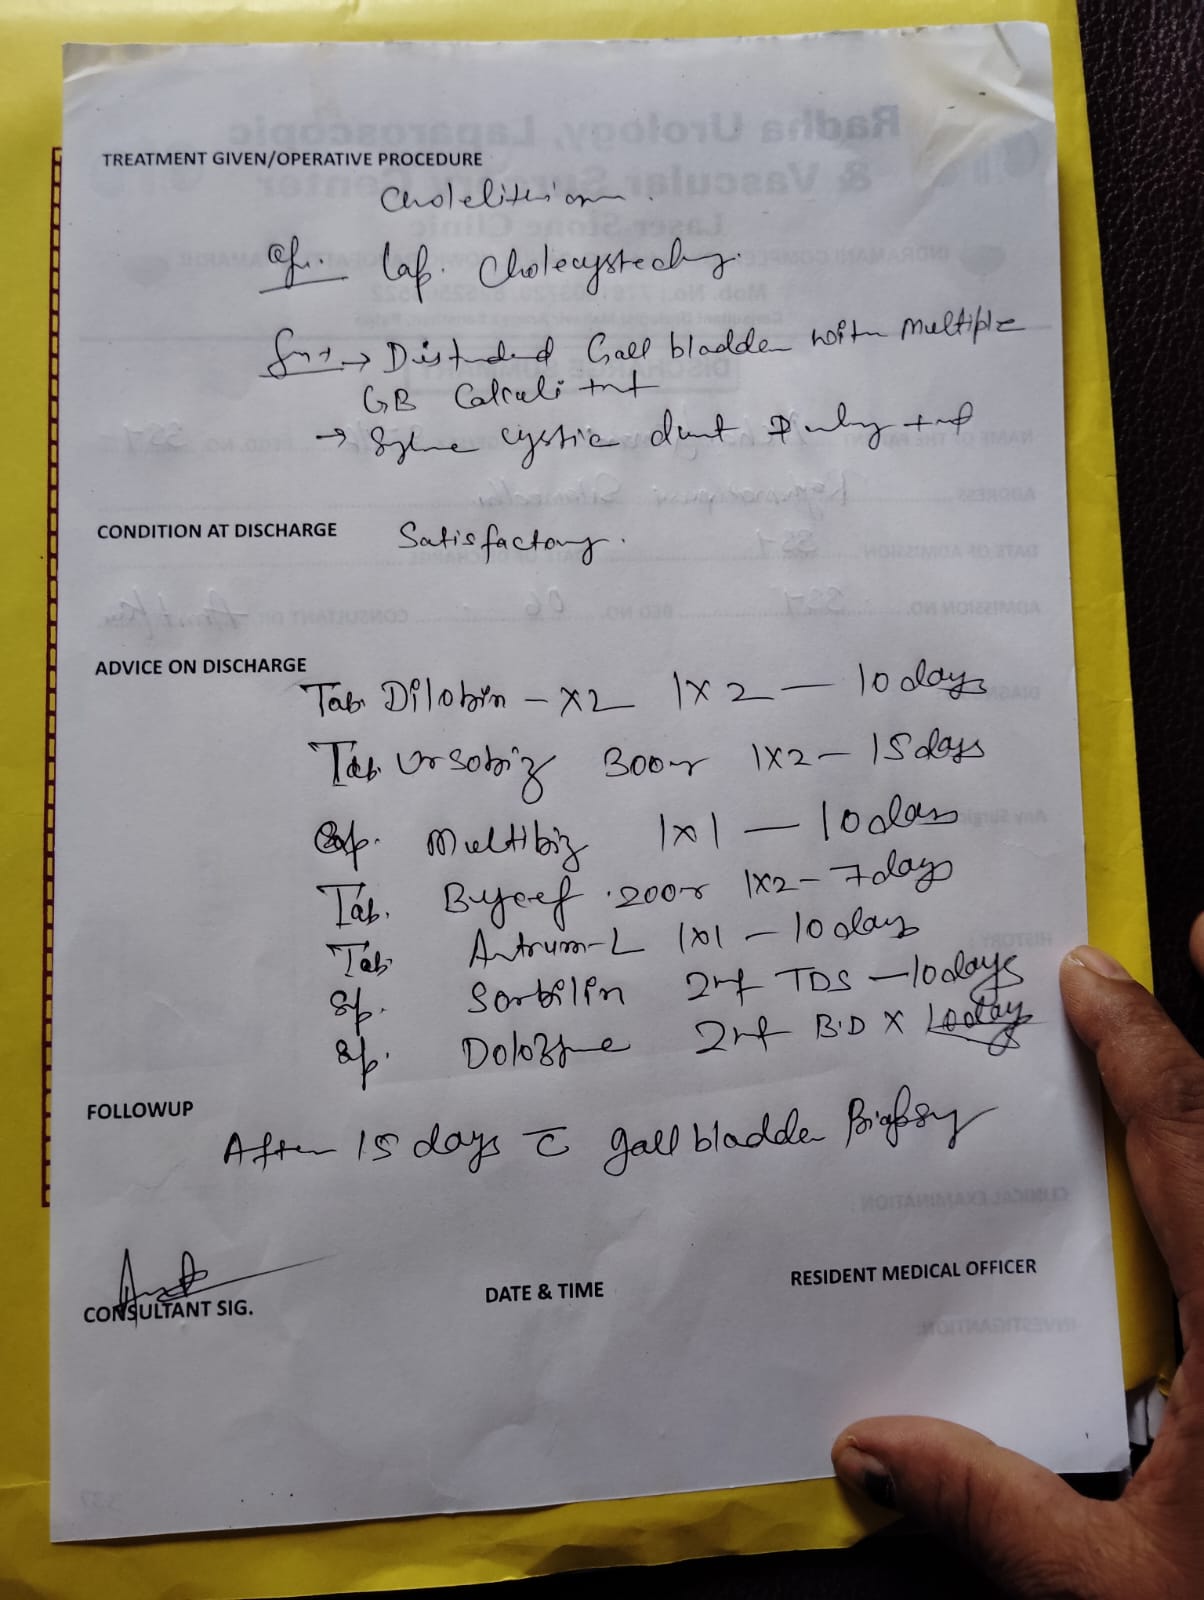 TREATMENT GIVEN/OPERATIVE PROCEDURE
Cholelithiasis.
Lap. Cholecystectomy.
→ Distended Gall bladder with Multiple
GB Calculi +nt
→ cystic duct +nt
CONDITION AT DISCHARGE Satisfactory.
ADVICE ON DISCHARGE
Tab Dilobin - X2 1X2 — 10 days
Tab. Ursobiz 300 1X2 — 15 days
Cap. Multibiz 1x1 — 10 days
Tab. 200 1X2 - 7 days
Tab Antrum-L 1x1 — 10 days
Sp. Sorbilin TDS — 10 days
Sp. B.D X 10 days
FOLLOWUP
After 15 days c̄ gall bladder Biopsy
CONSULTANT SIG.
DATE & TIME
RESIDENT MEDICAL OFFICER